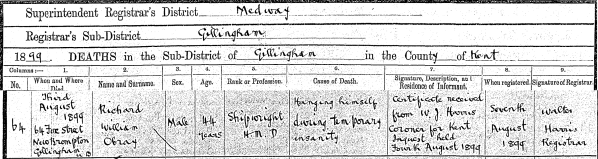 Superintendent Registrar's District Medway
Registrar's Sub-District Gillingham
1899 DEATHS in the Sub-District of Gillingham in the County of Kent
Columns:— 1. 2. 3. 4. 5. 6. 7. 8. 9.
No. When and Where Died. Name and Surname. Sex. Age. Rank or Profession. Cause of Death. Signature, Description, and Residence of Informant. When registered. Signature of Registrar.
64
Third
August
1899
64 Fox Street
New Brompton
Gillingham
Richard
William
Obray
Male
44
years
Shipwright
H.M.D
Hanging himself
during temporary
insanity
Certificate received
from W. J. Harris
Coroner for Kent
Inquest held
Fourth August 1899
Seventh
August
1899
Walter
Harris
Registrar